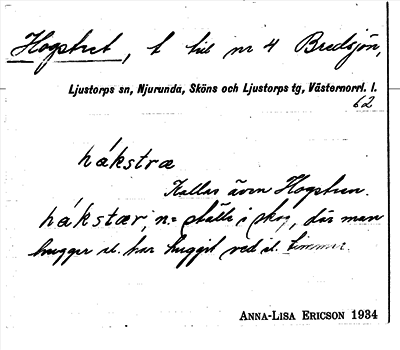 Hogstret, t till nr 4 Bredsjön,
Ljustorps sn, Njurunda, Sköns och Ljustorps tg, Västernorrl. l.
62
håkstræ
Kallas även Hogstren.
håkstær, n = ställe i skog, där man
hugger el. har huggit ved el. timmer.
ANNA-LISA ERICSON 1934